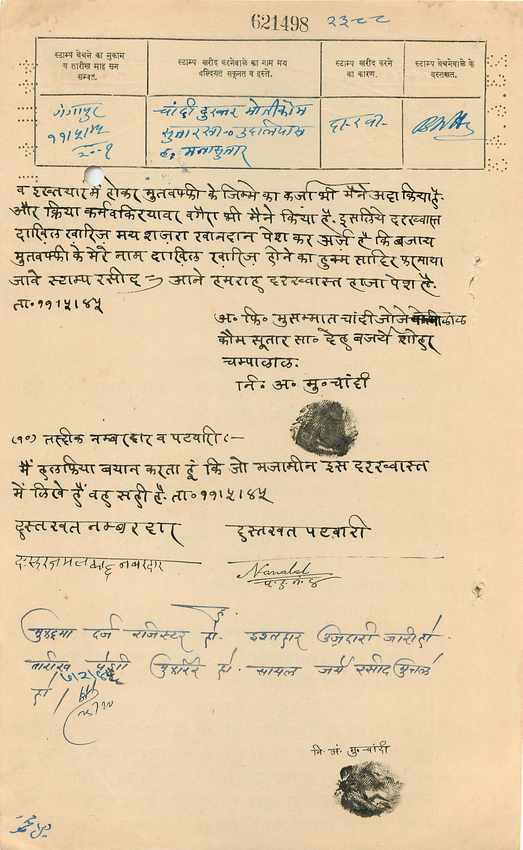 621498 २३८८
स्टाम्प बेचने का मुकाम
व तारीख माह सन
सम्वत.
स्टाम्प खरीद करनेवाले का नाम मय
वल्दियत सकूनत व दस्ते.
स्टाम्प खरीद करने
का कारण.
स्टाम्प बेचनेवाले के
दस्तखत.
गंगापुर
११।५।४५
चांदी
सुतार सा०
द. मन्नासुतार
व इख्तयारमें होकर मुतवफ्फी के जिम्मे का कर्जा भी मैंने अदा किया है
और क्रिया कर्म वकिरयावर वगैरा भी मैंने किया है. इसलिये दरख्वास्त
दाखिल खारिज मय शजरा खानदान पेश कर अर्ज है कि बजाय
मुतवफ्फी के मेरे नाम दाखिल खारिज होने का हुक्म सादिर फरमाया
जावे स्टाम्प रसीद =) आने हमराह दरख्वास्त हाजा पेश है.
ता० ११।५।४५
अ० फि० मुसम्मात चांदी जोजे
कौम सूतार सा० देह बजर्ये शोहर
चम्पालाल.
नि. अ० मु० चांदी
(१०) तस्दीक नम्बरदार व पटवारी :—
मैं हलफिया बयान करता हूं कि जो मजामीन इस दरख्वास्त
में लिखे हैं वह सही है. ता० ११।५।४५
दस्तखत नम्बरदार दस्तखत पटवारी
नम्बरदार Nandlal
प. ह. न. ४
ह.
मुकद्दमा दर्ज राजिस्टर हो. इश्तहार उज्रदारी जारी हो.
तारीख पेशी मुकर्रर हो. सायल जर्ये रसीद मुत्तला
हो
नि. अं. मु. चांदी